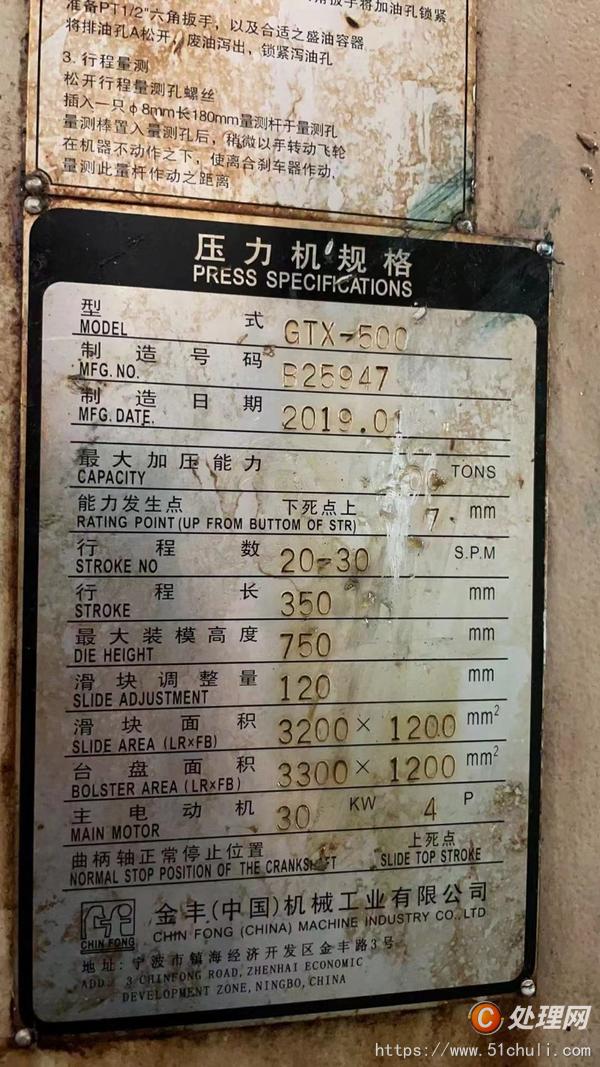 准备PT1/2"六角扳手，以及合适之盛油容器
将排油孔A松开，废油泻出，锁紧泻油孔
3. 行程量测
松开行程量测孔螺丝
插入一只φ8mm长180mm量测杆于量测孔
量测棒置入量测孔后，稍微以手转动飞轮
在机器不动作之下，使离合刹车器作动，
量测此量杆作动之距离
压力机规格
PRESS SPECIFICATIONS
型 式 GTX-500
MODEL
制造号码 B25947
MFG.NO.
制造日期 2019.01
MFG.DATE.
最大加压能力 TONS
CAPACITY
能力发生点 下死点上 7 mm
RATING POINT (UP FROM BUTTOM OF STR)
行程数 20-30 S.P.M
STROKE NO
行程长 350 mm
STROKE
最大装模高度 750 mm
DIE HEIGHT
滑块调整量 120 mm
SLIDE ADJUSTMENT
滑块面积 3200×1200 mm²
SLIDE AREA (LR×FB)
台盘面积 3300×1200 mm²
BOLSTER AREA (LR×FB)
主电动机 30 KW 4 P
MAIN MOTOR
曲柄轴正常停止位置 上死点
NORMAL STOP POSITION OF THE CRANKSHAFT SLIDE TOP STROKE
CHIN FONG
金丰(中国)机械工业有限公司
CHIN FONG (CHINA) MACHINE INDUSTRY CO.,LTD
地址：宁波市镇海经济开发区金丰路3号
ADD.: 3 CHINFONG ROAD, ZHENHAI ECONOMIC
DEVELOPMENT ZONE, NINGBO, CHINA
C 处理网
https://www.51chuli.com